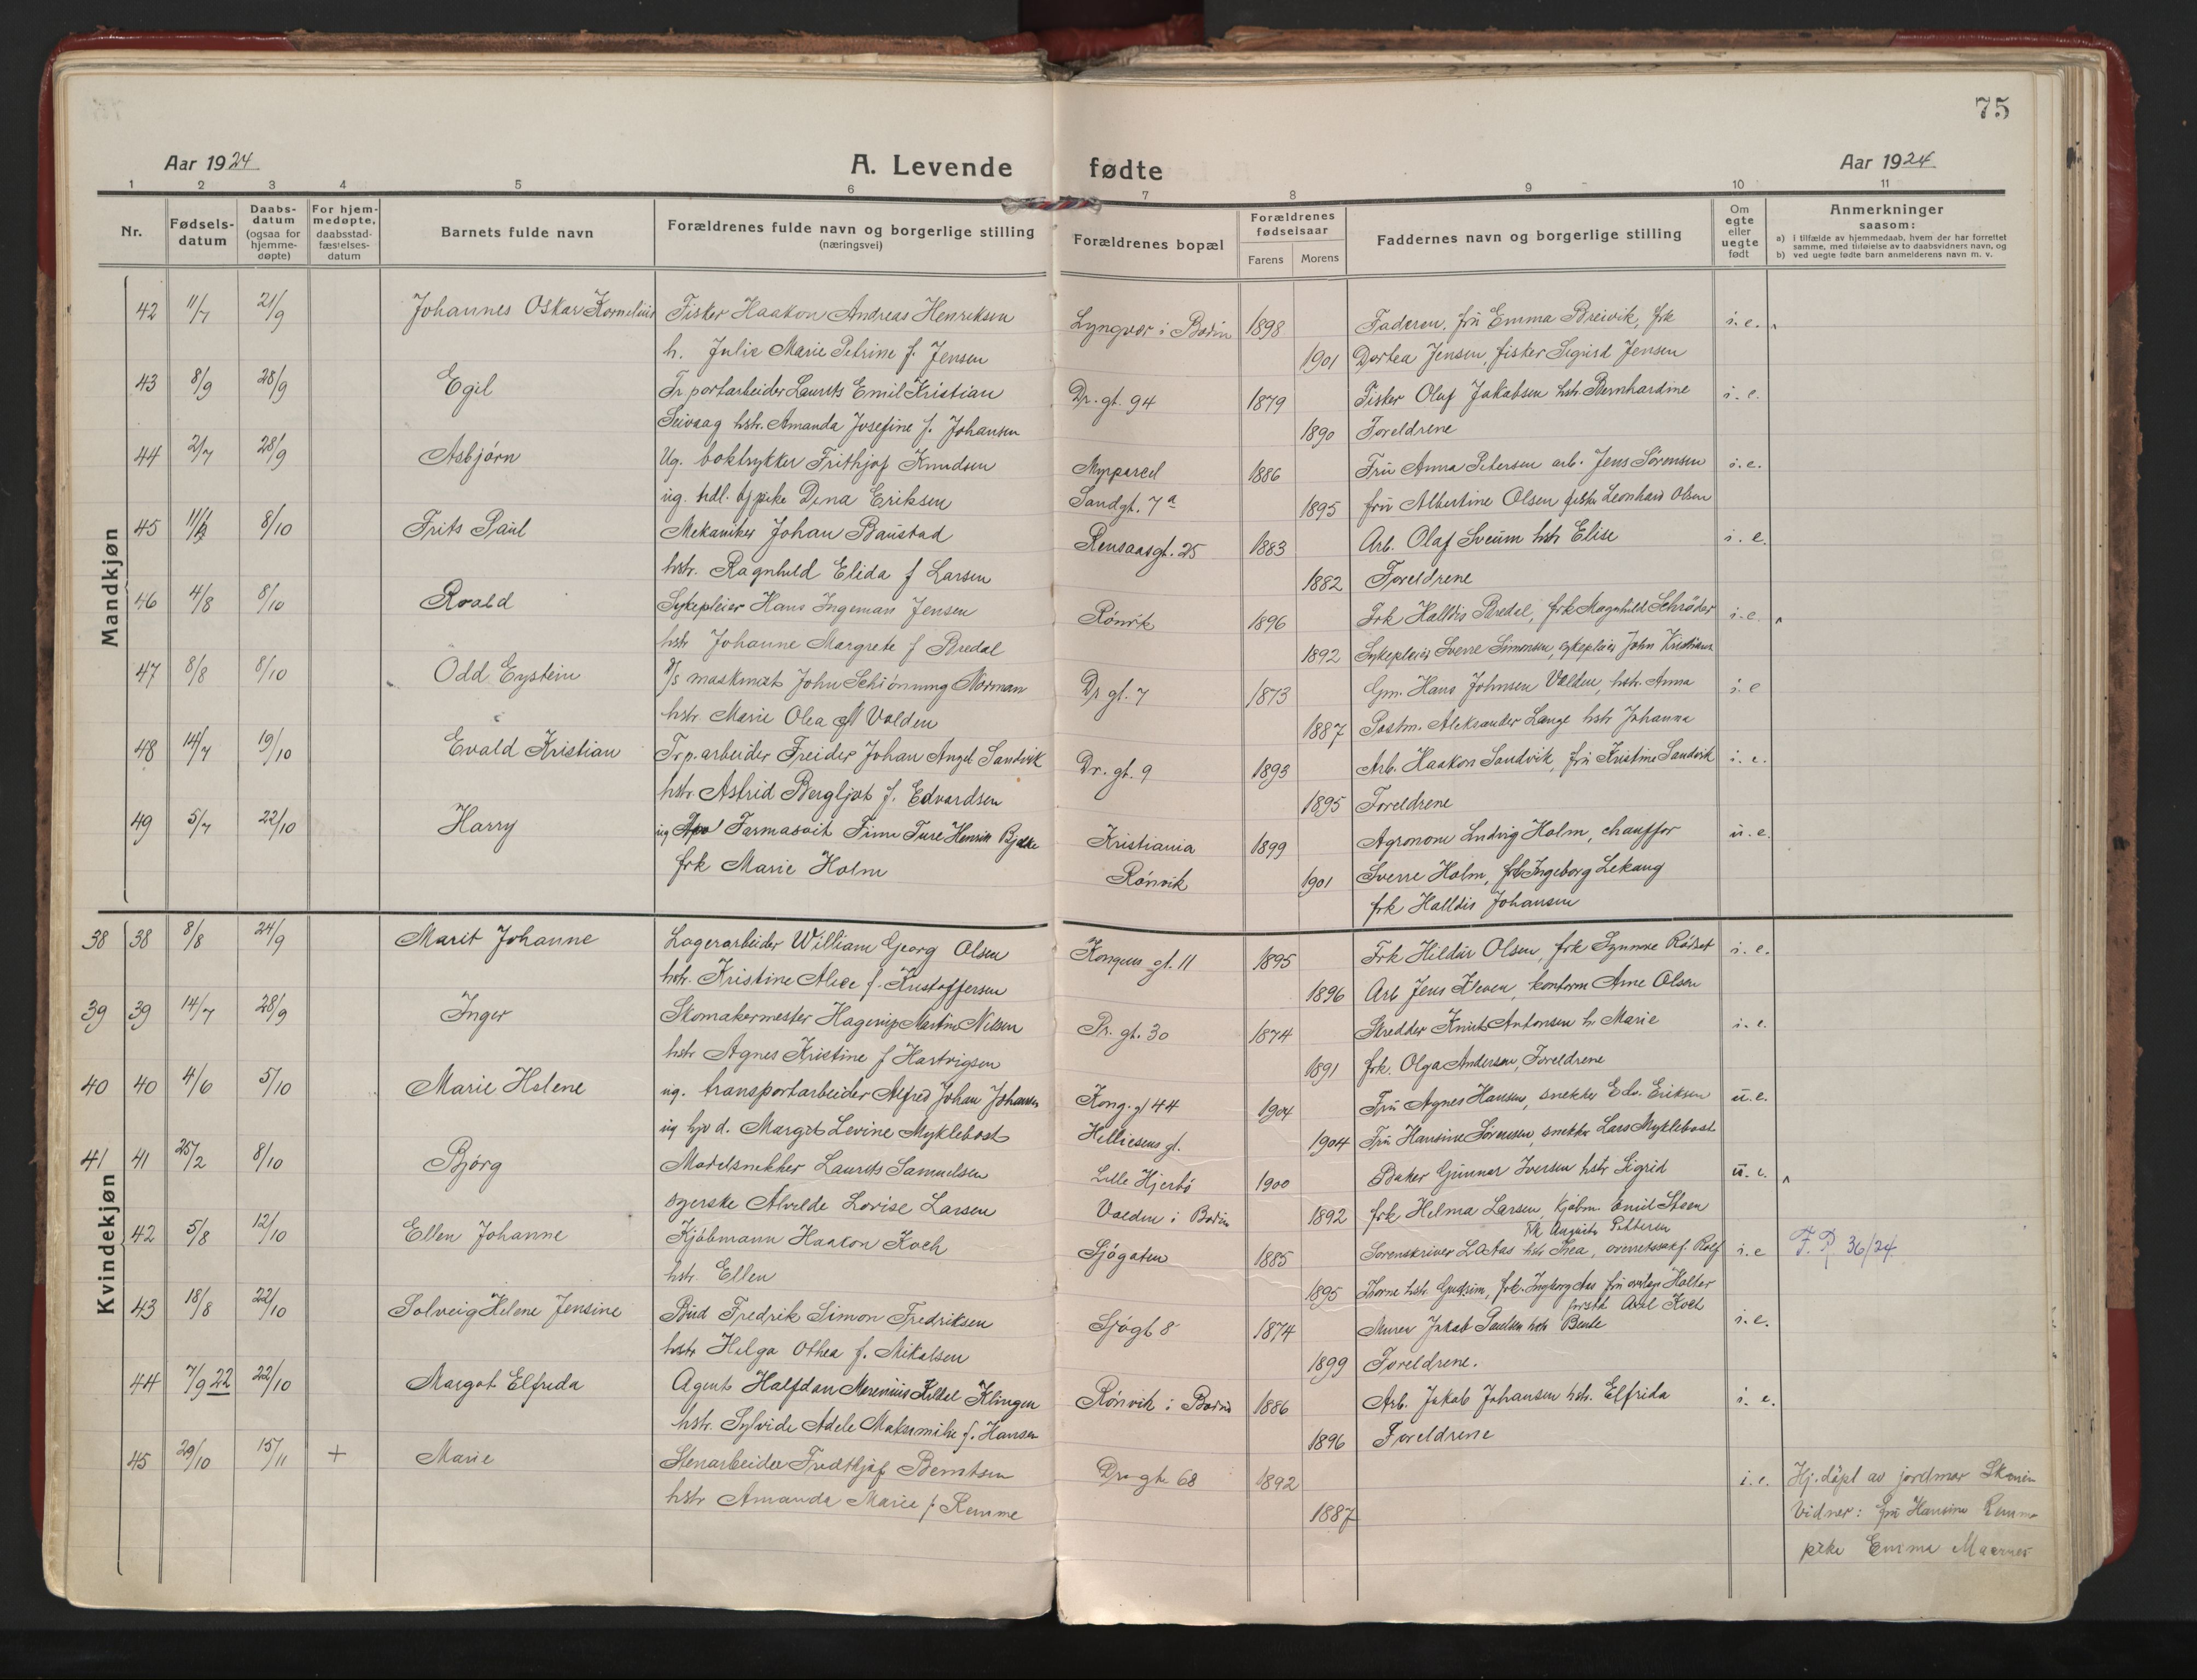 75
Aar 1924 A. Levende fødte Aar 1924
1 2 3 4 5 6 7 8 9 10 11
Nr. Fødsels-datum Daabs-datum (ogsaa for hjemme-døpte) For hjem-medøpte, daabsstad-fæstelses-datum Barnets fulde navn Forældrenes fulde navn og borgerlige stilling (næringsvei) Forældrenes bopæl Forældrenes fødselsaar Farens Morens Faddernes navn og borgerlige stilling Om egte eller uegte født Anmerkninger saasom: a) i tilfælde av hjemmedaab, hvem der har forrettet samme, med tilføielse av to daabsvidners navn, og b) ved uegte fødte barn anmelderens navn m. v.
Mandkjøn
42 11/7 21/9 Johannes Oskar Kornelius Fisker Haakon Andreas Henriksen Lyngvær i Bodin 1898 Faderen, frü Emma Breivik, frk i. e.
h. Julie Marie Petrine f. Jensen 1901 Dortea Jensen, fisker Sigurd Jensen
43 8/9 28/9 Egil Tr portarbeider Laurits Emil Kristian Dr. gt. 94 1879 Fisker Oluf Jakobsen hstr. Bernhardine i. e.
Seivaag hstr. Amanda Josefine f. Johansen 1890 Foreldrene
44 2/7 28/9 Asbjørn Ug. boktrykker Frithjof Knudsen Myrparcel 1886 Frü Anna Petersen arb. Jens Sørensen i. e.
ug. hdl. bj pike Dina Eriksen Sandgt. 7a 1895 frü Albertine Olsen fisk. Leonhard Olsen
45 8/10 Frits Paul Mekaniker Johan Baustad Rensaasgt. 25 1883 Arb. Olaf Sveum hstr Elise i. e.
hstr. Ragnhild Elida f Larsen 1882 Foreldrene
46 4/8 8/10 Roald Sykepleier Hans Ingeman Jensen Rønvik 1896 Frk Halldis Bredal, frk Magnhild Schrøder i. e.
hstr Johanne Margrete f Bredal 1892 Sykepleier Sverre Simonsen, sykepleier John Kristiansen
47 8/8 8/10 Odd Eystein D/S maskinist John Schiønning Norman Dr gt. 7 1873 Gm. Hans Johnsen Valden, hstr. Anna i. e
hstr. Marie Olea f Valden 1887 Postm. Aleksander Lange hstr Johanna
48 14/7 19/10 Evald Kristian Trp. arbeider Freider Johan Angel Sandvik Dr. gt. 9 1893 Arb. Haakon Sandvik, frü Kristine Sandvik i. e.
hstr. Astrid Bergljot f. Edvardsen 1895 Foreldrene
49 5/7 22/10 Harry ug Farmasøit Finn Ture Henrik Kristiania 1899 Agronom Ludvig Holm, chauffør u. e.
frk Marie Holm Rønvik 1901 Sverre Holm, frk Ingeborg Lekang
frk Halldis Johansen
Kvindekjøn
38 38 8/8 24/9 Marit Johanne Lagerarbeider William Georg Olsen Kongens gt. 11 1895 Frk Hildur Olsen, frk Synnøve Rødset i. e.
hstr. Kristine Alice f. Kristoffersen 1896 Arb Jens Kleven, kontorm Arne Olsen
39 39 14/7 28/9 Inger Skomakermester Hagerup Martin Nilsen Pr. gt. 30 1874 Skredder Knut Antonsen h. Marie i. e.
hstr Agnes Kristine f Hartvigsen 1891 frk. Olga Andersen, Foreldrene
40 40 4/6 5/10 Marie Helene ug. transportarbeider Alfred Johan Johansen Kong. gt 44 1904 Frü Agnes Hansen, snekker Edv. Eriksen u. e.
ug hjv d. Margit Levine Myklebost Helliesens gt. 1904 Frü Hansine Sørensen, snekker Lars Myklebost
41 41 25/2 8/10 Bjørg Modelsnekker Laurits Samuelsen Lille Hjertø 1900 Baker Gunnar Iversen hstr Sigrid u. e.
syerske Alvilde Lovise Larsen Valden i Bodin 1892 frk Helma Larsen, Kjøbm. Emil Steen
frk Augusta Pettersen
42 5/8 12/10 Ellen Johanne Kjøbmann Haakon Koch Sjøgaten 1885 Sorenskriver L Aas hstr Thea, overretssakf. Rolf i. e F. R. 36/24
hstr. Ellen 1895 Thorne hstr. Gudrun, frk. Ingeborg Aas frü overlege Holter
forstk Axel Koch
43 18/8 22/10 Solveig Helene Jensine Bud Fredrik Simon Fredriksen Sjøgt 8 1874 Murer Jakob Paulsen hstr Berte i. e.
hstr Helga Othea f. Mikalsen 1899 Foreldrene.
44 7/9 22 22/10 Margot Elfrida Agent Halfdan Merenius Kildal Klingen Rønvik i Bodin 1886 Arb. Jakob Johansen hstr. Elfrida i. e.
hstr. Sylvide Adele Maksimilie f. Hansen 1896 Foreldrene
45 29/10 15/11 + Marie Stenarbeider Fredthjof Berntsen Dr gt. 68 1892 i. e. Hj. døpt av jordmor
hstr Amanda Marie f Remme 1887 Vidner: frü Hansine Remme
pike Emma